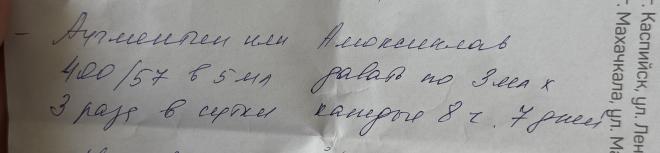 - Аугментин или Амоксиклав
400/57 в 5 мл давать по 3 мл х
3 раза в сутки каждые 8 ч. 7 дней
г. Каспийск, ул. Лен
г. Махачкала, ул. Ма